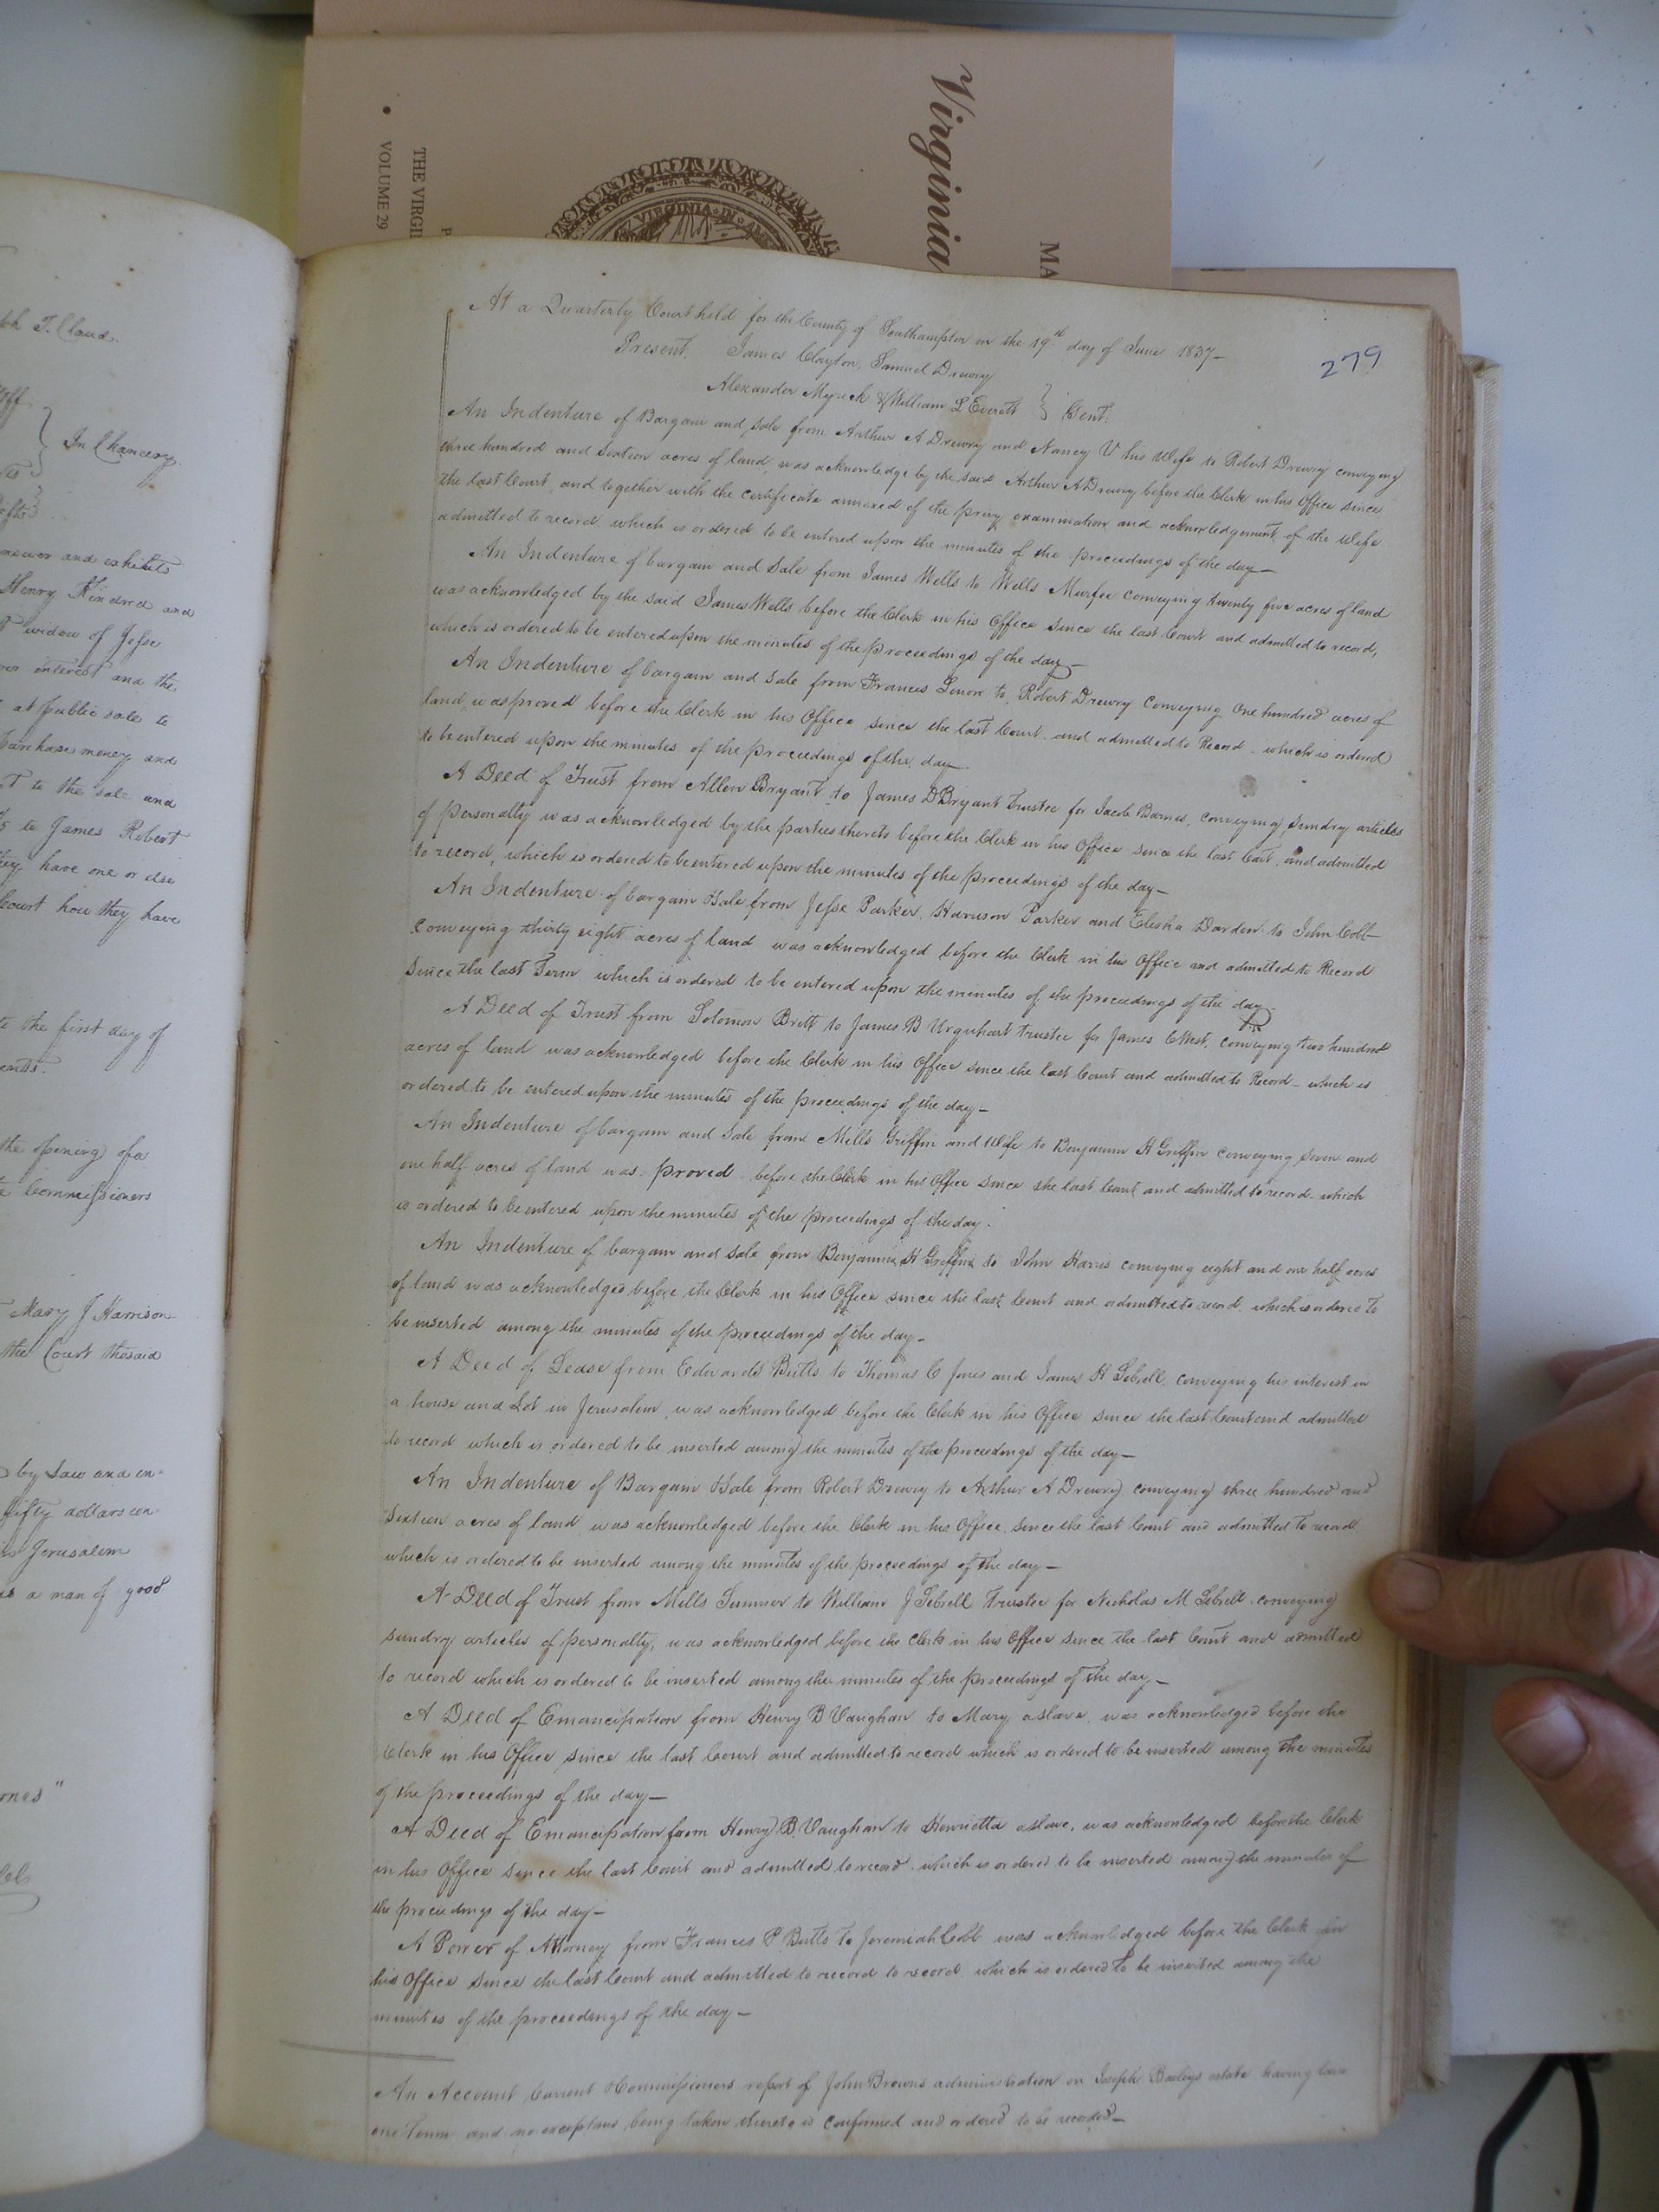 Virginia
MA
THE VIRGI
VOLUME 29
P
VIRGINIA IN AME
ph T. Claud.
In Chancery.
answer and exhibits
Henry Kindred and
widow of Jesse
interest and the
at public sale to
purchase money and
to the sale and
to James Robert
they have one or else
Court how they have
the first day of
the opening of a
Commissioners
Mary J Harrison
the Court the said
by Law and en-
fifty dollars con-
in Jerusalem
is a man of good
279
At a Quarterly Court held for the County of Southampton on the 19th day of June 1837—
Present. James Clayton, Samuel Drewry
Alexander Myrick & William L Everett } Gent.
An Indenture of Bargain and sale from Arthur A Drewry and Nancy V his Wife to Robert Drewry conveying
three hundred and sixteen acres of land, was acknowledge by the said Arthur A Drewry before the Clerk in his Office since
the last Court, and together with the certificate annexed of the privy examination and acknowledgement of the Wife
admitted to record, which is ordered to be entered upon the minutes of the proceedings of the day—
An Indenture of bargain and Sale from James Wells to Wells Murfee conveying twenty five acres of land
was acknowledged by the said James Wells before the Clerk in his Office since the last Court and admitted to record,
which is ordered to be entered upon the minutes of the proceedings of the day—
An Indenture of bargain and sale from Francis to Robert Drewry conveying One hundred acres of
land, was proved before the Clerk in his Office since the last Court and admitted to Record which is ordered
to be entered upon the minutes of the proceedings of the day—
A Deed of Trust from Allen Bryant to James D Bryant Trustee for Jacob Barnes, conveying sundry articles
of personalty was acknowledged by the parties thereto before the Clerk in his Office since the last Court, and admitted
to record, which is ordered to be entered upon the minutes of the proceedings of the day—
An Indenture of bargain & Sale from Jesse Parker, Harrison Parker and Elisha Darden to John Cobb
conveying thirty eight acres of land was acknowledged before the Clerk in his Office and admitted to Record
since the last Term which is ordered to be entered upon the minutes of the proceedings of the day
A Deed of Trust from Solomon Britt to James B Urquhart trustee for James West, conveying two hundred
acres of land was acknowledged before the Clerk in his Office since the last Court and admitted to Record – which is
ordered to be entered upon the minutes of the proceedings of the day—
An Indenture of bargain and Sale from Mills Griffin and Wife to Benjamin H Griffin conveying seven and
one half acres of land was proved before the Clerk in his Office since the last Court and admitted to record which
is ordered to be entered upon the minutes of the proceedings of the day.
An Indenture of bargain and sale from Benjamin H Griffin to John Harris conveying eight and one half acres
of land was acknowledged before the Clerk in his Office since the last Court and admitted to record which is ordered to
be inserted among the minutes of the proceedings of the day—
A Deed of Lease from Edward Butts to Thomas C Jones and James H Sebrell, conveying his interest in
a house and Lot in Jerusalem, was acknowledged before the Clerk in his Office since the last Court and admitted
to record which is ordered to be inserted among the minutes of the proceedings of the day—
An Indenture of Bargain & Sale from Robert Drewry to Arthur A Drewry conveying three hundred and
sixteen acres of land, was acknowledged before the Clerk in his Office, since the last Court and admitted to record
which is ordered to be inserted among the minutes of the proceedings of the day—
A Deed of Trust from Mills Sumner to William J Sebrell Trustee for Nicholas M Sebrell, conveying
sundry articles of personalty, was acknowledged before the Clerk in his Office since the last Court and admitted
to record which is ordered to be inserted among the minutes of the proceedings of the day—
A Deed of Emancipation from Henry B Vaughan to Mary a slave, was acknowledged before the
Clerk in his Office since the last Court and admitted to record which is ordered to be inserted among the minutes
of the proceedings of the day—
A Deed of Emancipation from Henry B. Vaughan to Henrietta a slave, was acknowledged before the Clerk
in his Office since the last Court and admitted to record which is ordered to be inserted among the minutes of
the proceedings of the day—
A Power of Attorney from Frances P Butts to Jeremiah Cobb was acknowledged before the Clerk in
his Office since the last Court and admitted to record to record, which is ordered to be inserted among the
minutes of the proceedings of the day—
An Account Current & Commissioners report of John Browns administration on Joseph Baileys estate having lain
one Term and no exceptions being taken thereto is confirmed and ordered to be recorded—